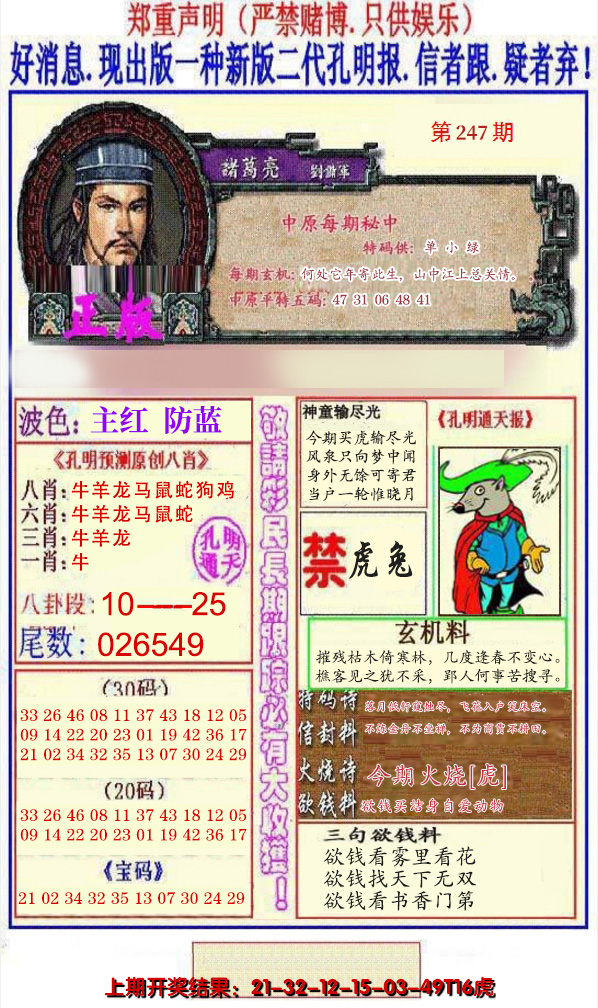 郑重声明（严禁赌博.只供娱乐）
好消息.现出版一种新版二代孔明报.信者跟.疑者弃！
第247期
諸葛亮 劉備軍
中原每期秘中
特码供：单小绿
每期玄机：何处它年寄此生，山中江上总关情。
中原平特五码：47 31 06 48 41
正版
波色：主红 防蓝
《孔明预测原创八肖》
八肖：牛羊龙马鼠蛇狗鸡
六肖：牛羊龙马鼠蛇
三肖：牛羊龙
一肖：牛
孔明
通天
八卦段：10——25
尾数：026549
（30码）
33 26 46 08 11 37 43 18 12 05
09 14 22 20 23 01 19 42 36 17
21 02 34 32 35 13 07 30 24 29
（20码）
33 26 46 08 11 37 43 18 12 05
09 14 22 20 23 01 19 42 36 17
《宝码》
21 02 34 32 35 13 07 30 24 29
敬請彩民長期跟踪必有大收獲！
神童输尽光
今期买虎输尽光
风泉只向梦中闻
身外无馀可寄君
当户一轮惟晓月
《孔明通天报》
禁 虎兔
玄机料
摧残枯木倚寒林，几度逢春不变心。
樵客见之犹不采，郢人何事苦搜寻。
特码诗 落月低轩窥烛尽，飞花入户笑床空。
信封料 不炼金丹不坐禅，不为商贾不耕田。
火烧诗 今期火烧[虎]
欲钱料 欲钱买洁身自爱动物
三句欲钱料
欲钱看雾里看花
欲钱找天下无双
欲钱看书香门第
上期开奖结果：21-32-12-15-03-49T16虎